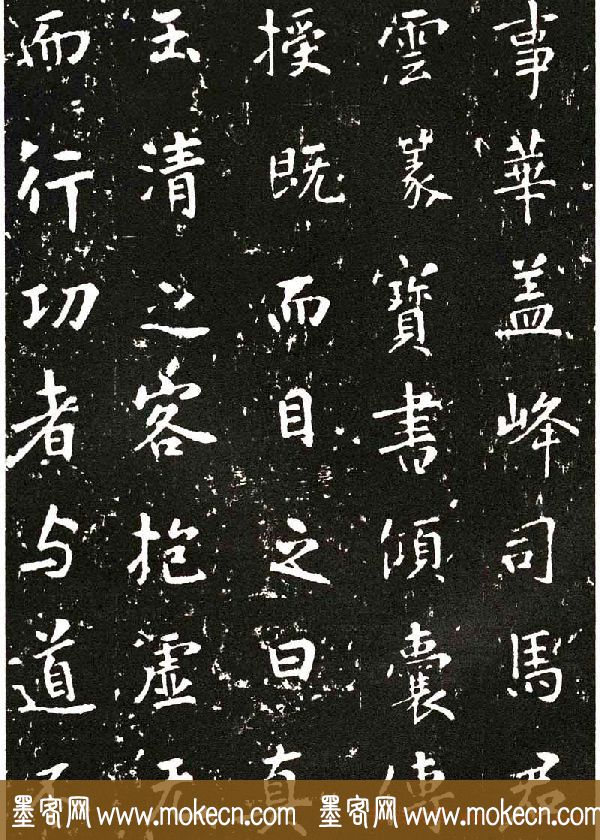 事華盖峰司馬君
雲篆寶書傾囊傳
授既而目之曰真
玉清之客抱虛无
而行功者与道
墨客网 www.mokecn.com 墨客网 www.mokecn.com